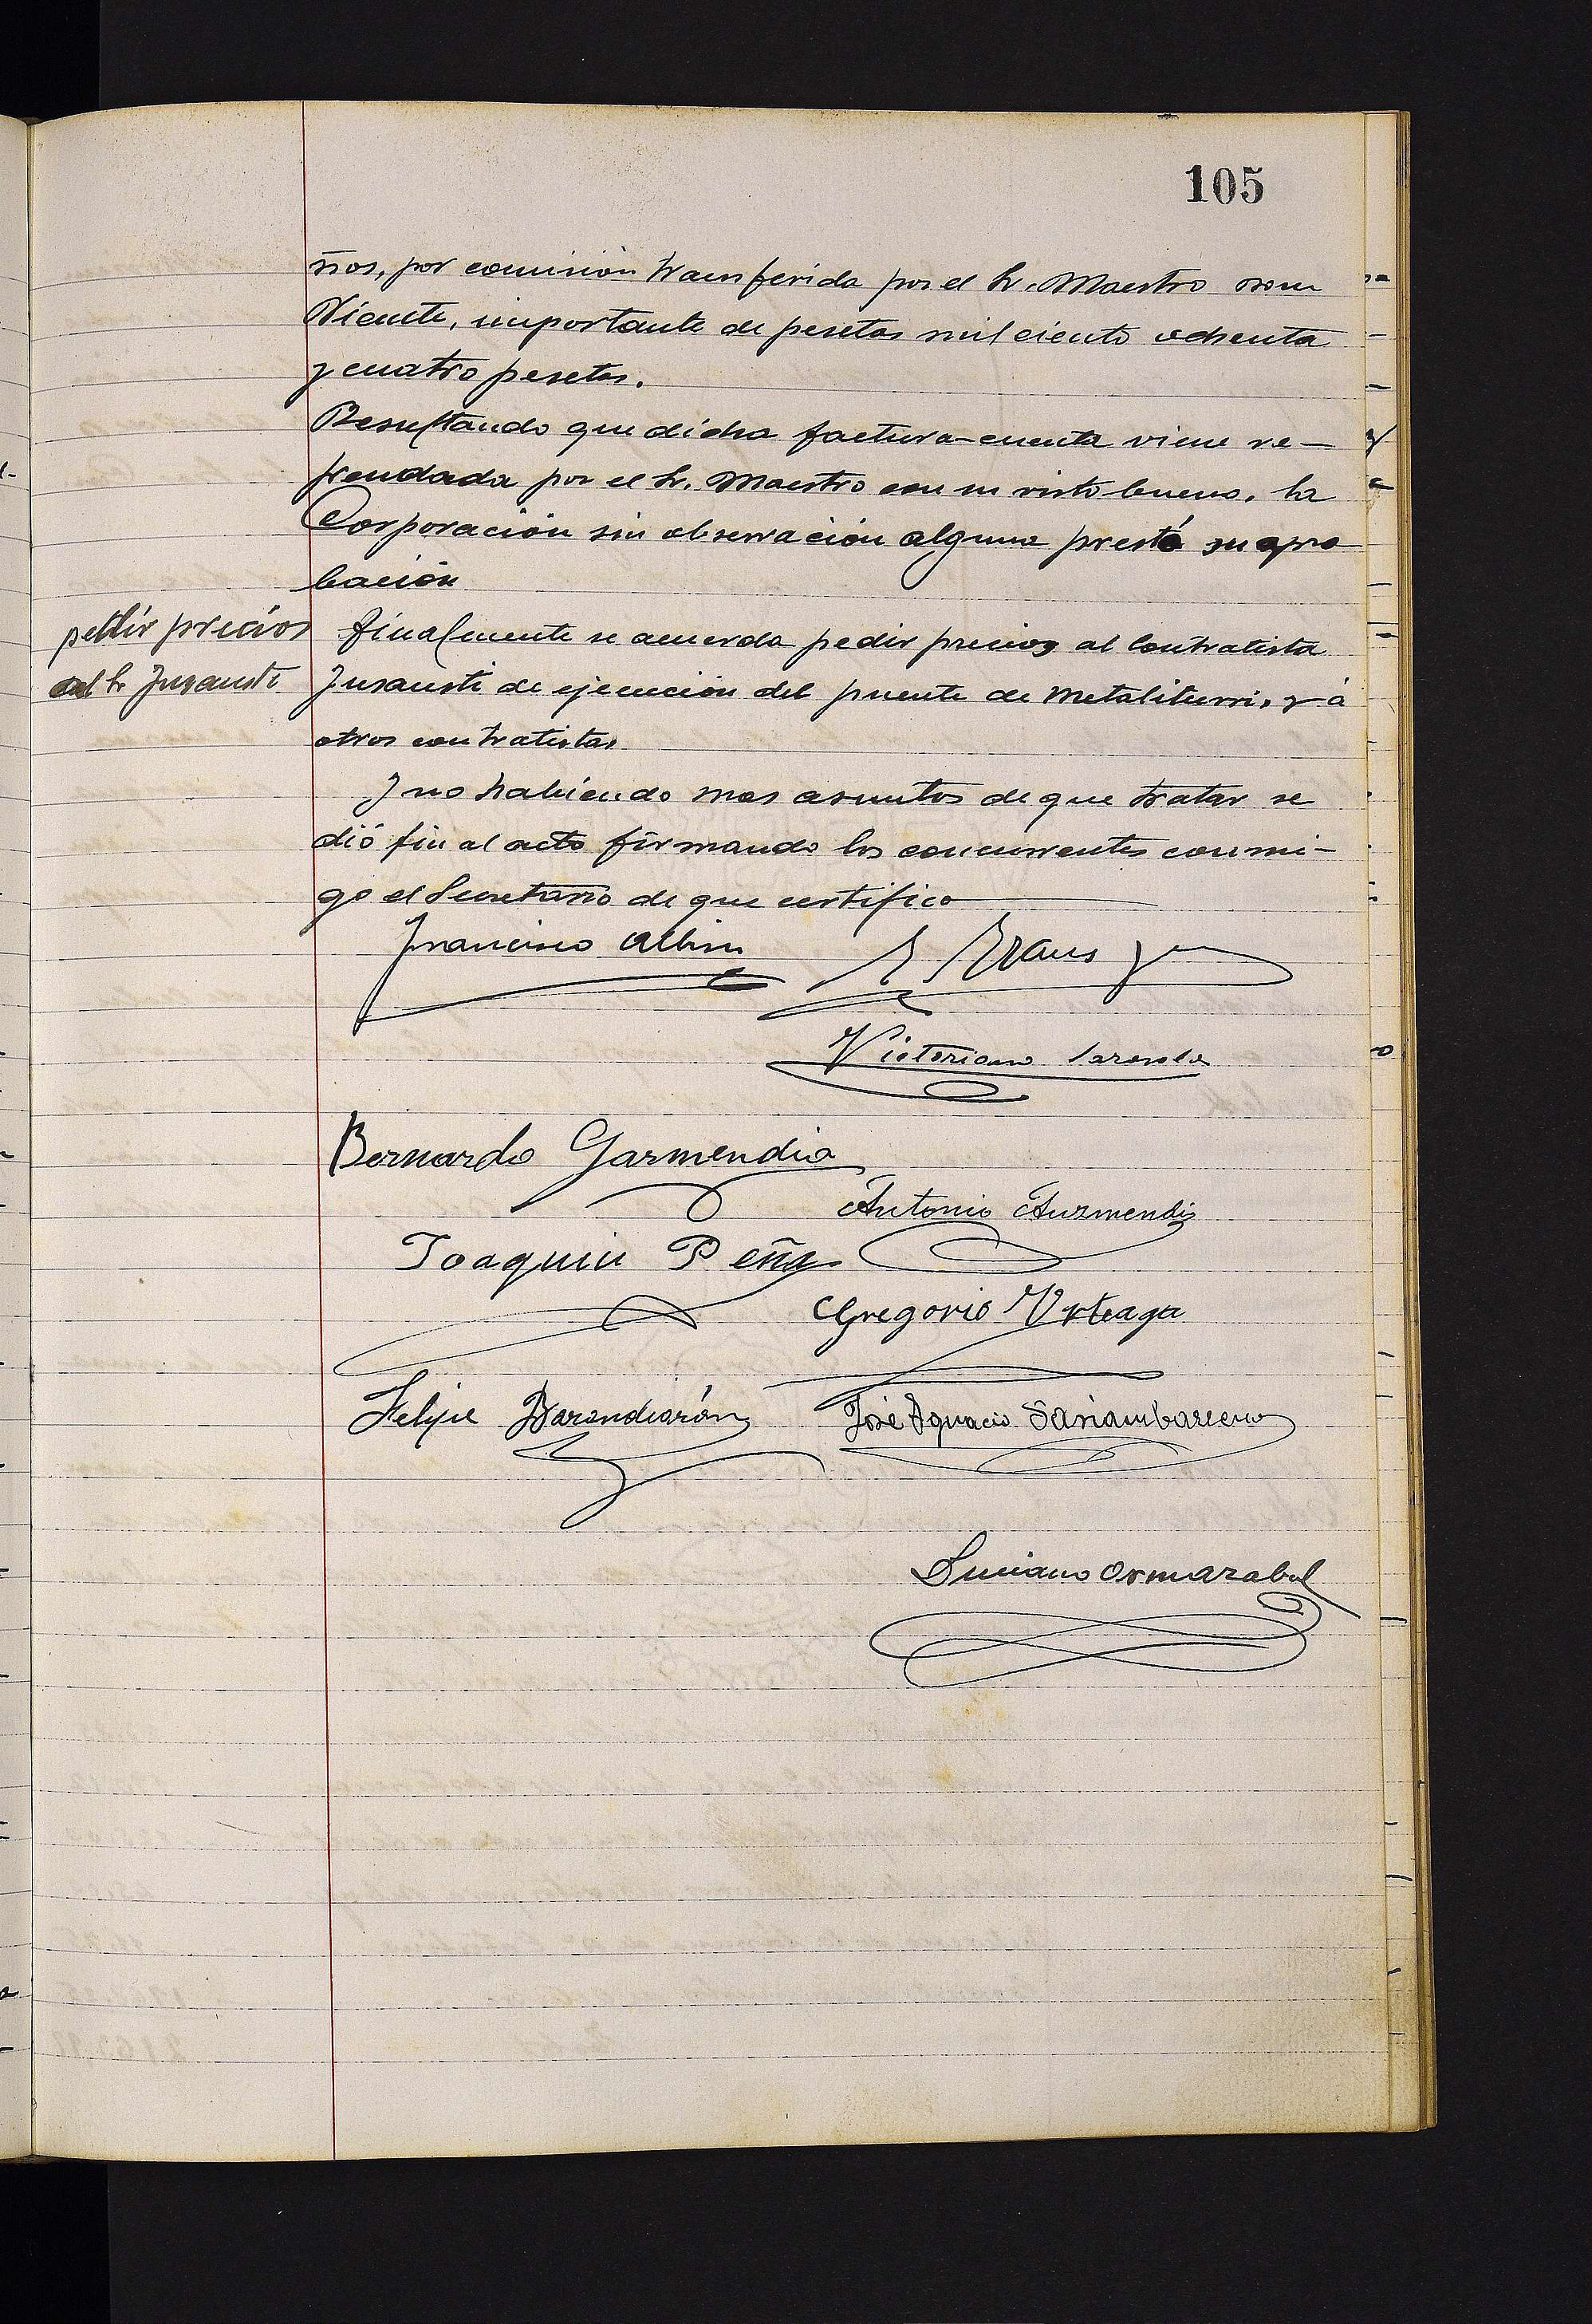 105
ños, por comisión transferida por el Sr. Maestro don
Vicente, importante de pesetas mil ciento ochenta
y cuatro pesetas.
Resultando que dicha factura-cuenta viene re-
frendada por el Sr. Maestro con su visto bueno, la
Corporación sin observación alguna prestó su apro
bación
pedir precios
al Sr Insausti
Finalmente se acuerda pedir precios al contratista
Insausti de ejecución del puente de Metaliturri, y á
otros contratistas
Y no habiendo mas asuntos de que tratar se
dió fin al acto firmando los concurrentes conmi-
go el Secretario de que certifico
Francisco Albisu
Victoriano
Bernardo Garmendia
Antonio Auzmendi
Joaquin Peña
Gregorio Urteaga
Felipe Barandiarán
José Ignacio Sariambarrena
Luciano Ormazabal